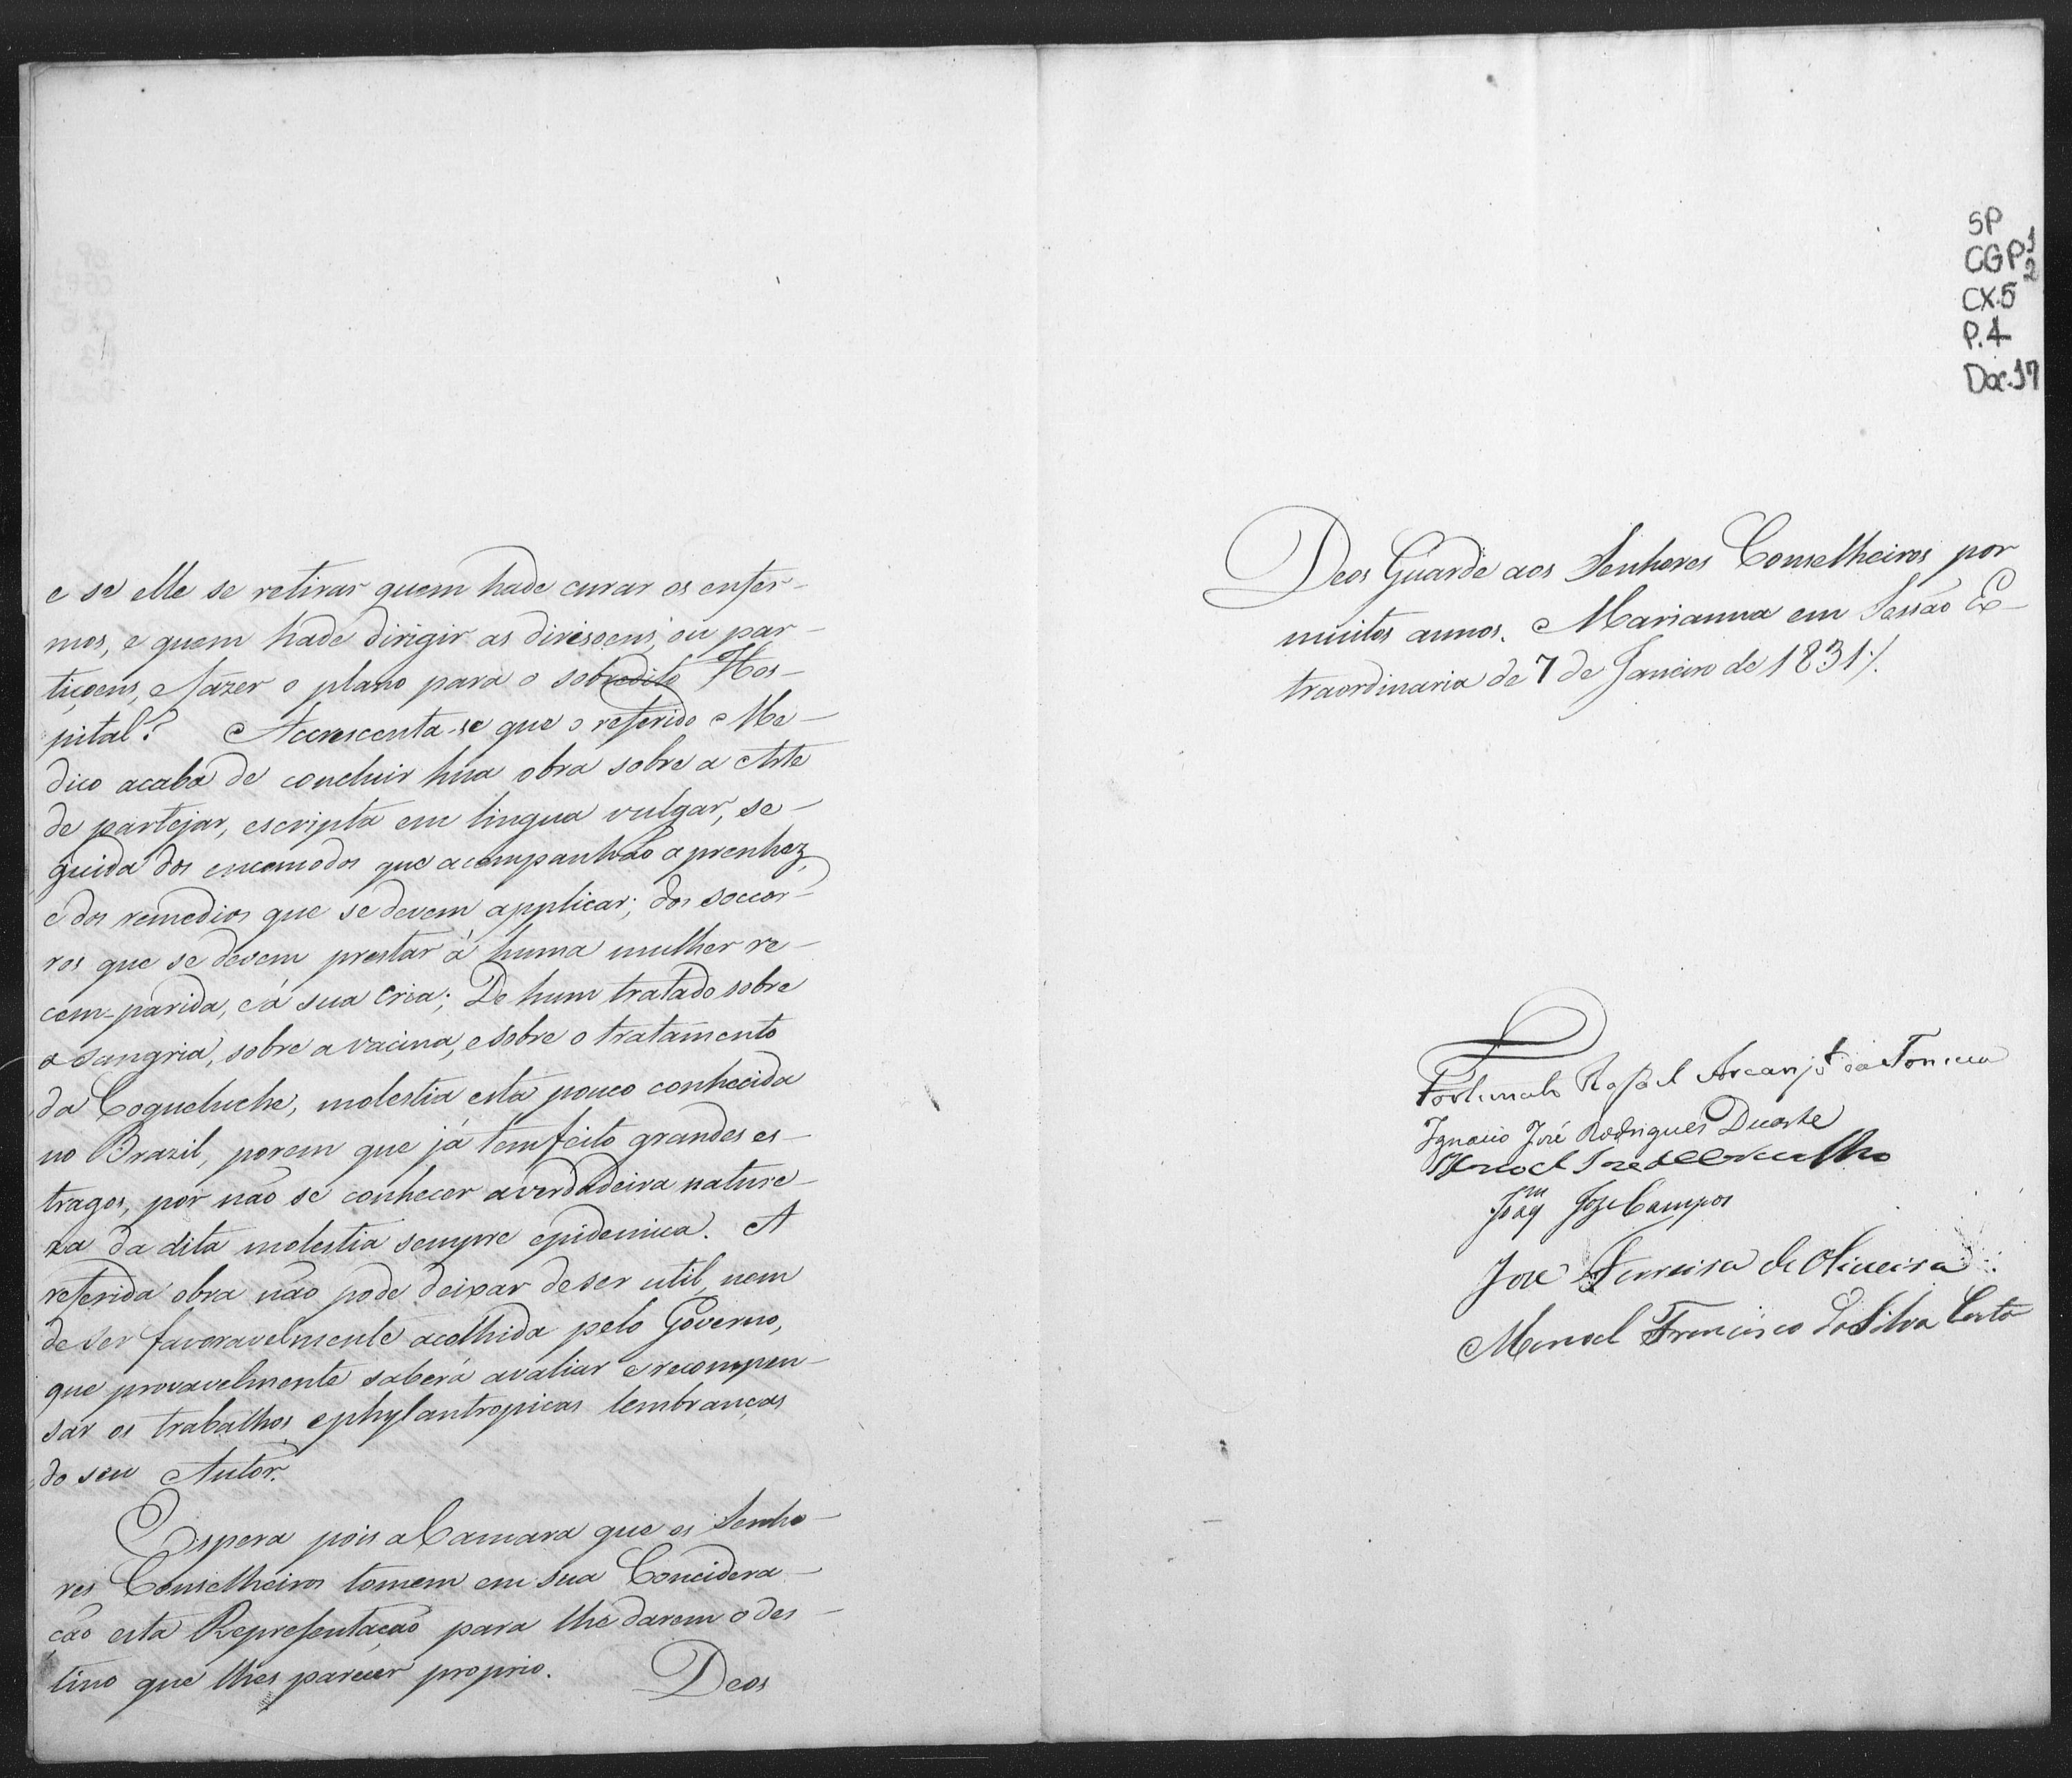 e se elle se retirar quem hade curar os enfer-
mos, e quem hade dirigir as divisoens, ou par-
tiçoens, e fazer o plano para o sobredito Hos-
pital? Accrescenta-se que o referido Me-
dico acaba de concluir hua obra sobre a Arte
de partejar, escripta em lingua vulgar, se-
guida dos encomodos que acompanhão a prenhez,
e dos remedios que se devem applicar; dos soccor-
ros que se devem prestar á huma mulher re-
cem-parida, e á sua cria; De hum tratado sobre
a sangria, sobre a vacina, e sobre o tratamento
da Coqueluche, molestia esta pouco conhecida
no Brazil, porem que já tem feito grandes es-
tragos, por não se conhecer a verdadeira nature-
za da dita molestia sempre epidemica. A
referida obra não pode deixar de ser util, nem
de ser favoravelmente acolhida pelo Governo,
que provavelmente saberá avaliar e recompen-
sar os trabalhos, e phylantropicas lembranças
do seu Autor.
Espera pois a Camara que os Senho-
res Conselheiros tomem em sua Concidera-
ção esta Representação para lhe darem o des-
tino que lhes parecer proprio.
Deos
SP
CGP 1
2
CX.5
P.4
Doc.17
Deos Guarde aos Senhores Conselheiros por
muitos annos. Marianna em Sessão Ex-
traordinaria de 7 de Janeiro de 1831
Fortunato Rafael Arcanjo da Fonseca
Ignacio José Rodrigues Duarte
Manoel José de Carvalho
Joaqm Joze Campos
José Ferreira de Oliveira
Manoel Francisco da Silva Costa